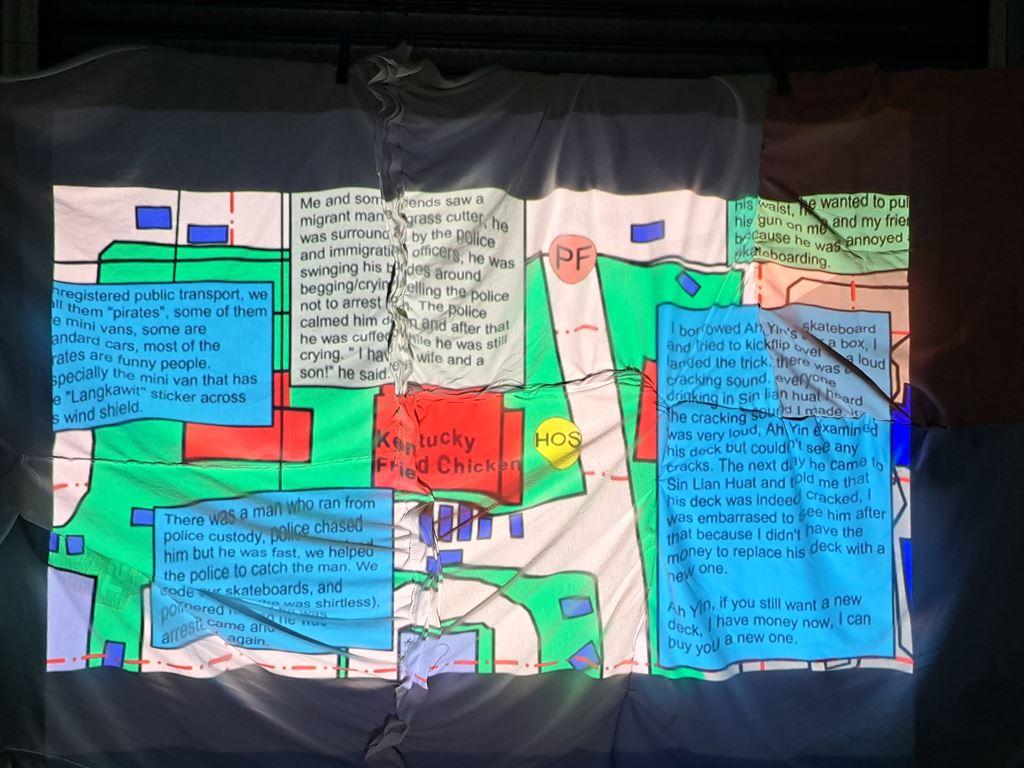 Me and som ends saw a
migrant man grass cutter, he
was surround by the police
and immigrati officers, he was
swinging his b des around
begging/cryin elling the police
not to arrest The police
calmed him d n and after that
he was cuffe ile he was still
crying. " I ha wife and a
son!" he said.
his waist, he wanted to pul
his gun on me and my frien
because he was annoyed
skateboarding.
PF
nregistered public transport, we
ll them "pirates", some of them
e mini vans, some are
andard cars, most of the
rates are funny people.
specially the mini van that has
e "Langkawit" sticker across
s wind shield.
I borrowed Ah Yin's skateboard
and tried to kickflip over a box, I
landed the trick, there was a loud
cracking sound, everyone
drinking in Sin lian huat heard
the cracking sound I made, it
was very loud, Ah Yin examined
his deck but couldn't see any
cracks. The next day he came to
Sin Lian Huat and told me that
his deck was indeed cracked, I
was embarrased to see him after
that because I didn't have the
money to replace his deck with a
new one.
Ah Yin, if you still want a new
deck, I have money now, I can
buy you a new one.
Kentucky
Fried Chicken
HOS
There was a man who ran from
police custody, police chased
him but he was fast, we helped
the police to catch the man. We
rode our skateboards, and
(he was shirtless).
came and he was
again.